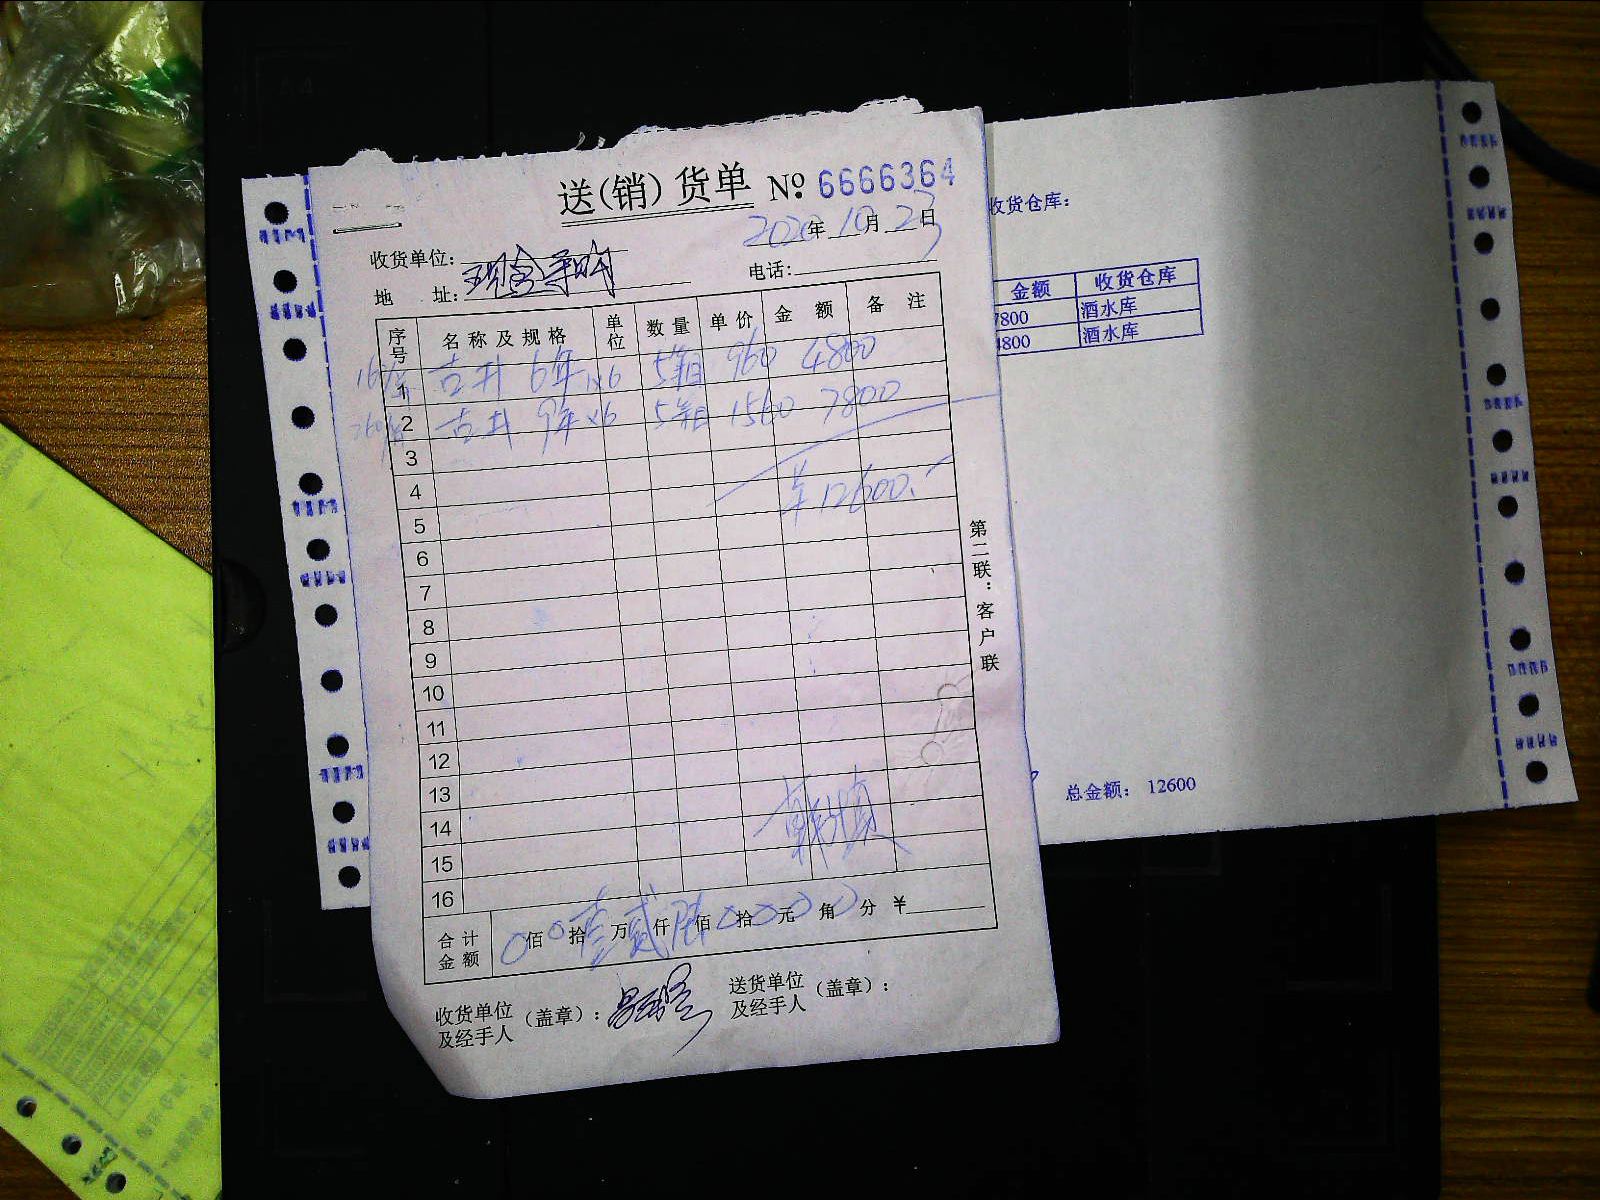 送(销)货单 № 6666364
2020年10月23日
收货单位:
地 址: 电话:
序号 名称及规格 单位 数量 单价 金额 备注
1 古井 6年 1×6 5箱 960 4800
2 古井 9年 ×6 5箱 1560 7800
3
4 ¥12600.
5
6
7
8
9
10
11
12
13
14
15
16
合计金额 0佰0拾壹万贰仟陆佰0拾0元0角0分 ¥
收货单位及经手人(盖章): 送货单位及经手人(盖章):
第二联:客户联
收货仓库:
金额 收货仓库
7800 酒水库
4800 酒水库
总金额: 12600